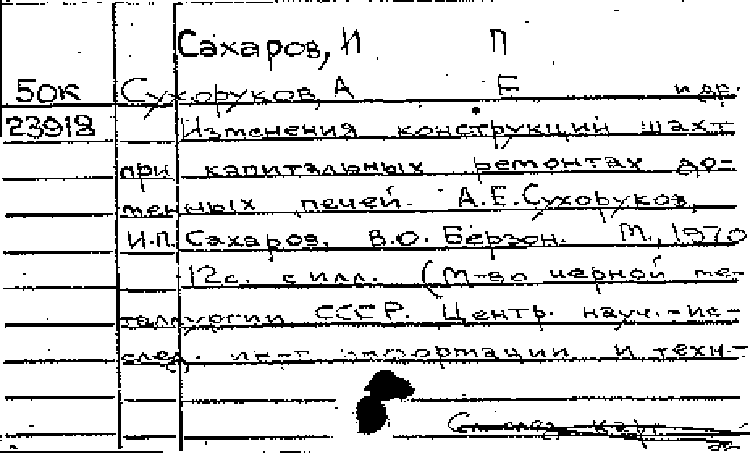 Сахаров, И П
50к Сухоруков, А Е и др.
23918 Изменения конструкций шахт
при капитальных ремонтах до-
менных печей. А.Е. Сухоруков,
И.П. Сахаров, В.О. Берзон. М., 1970
12с. с илл. (М-во черной ме-
таллургии СССР. Центр. науч.-ис-
след. ин-т информации и техн.-